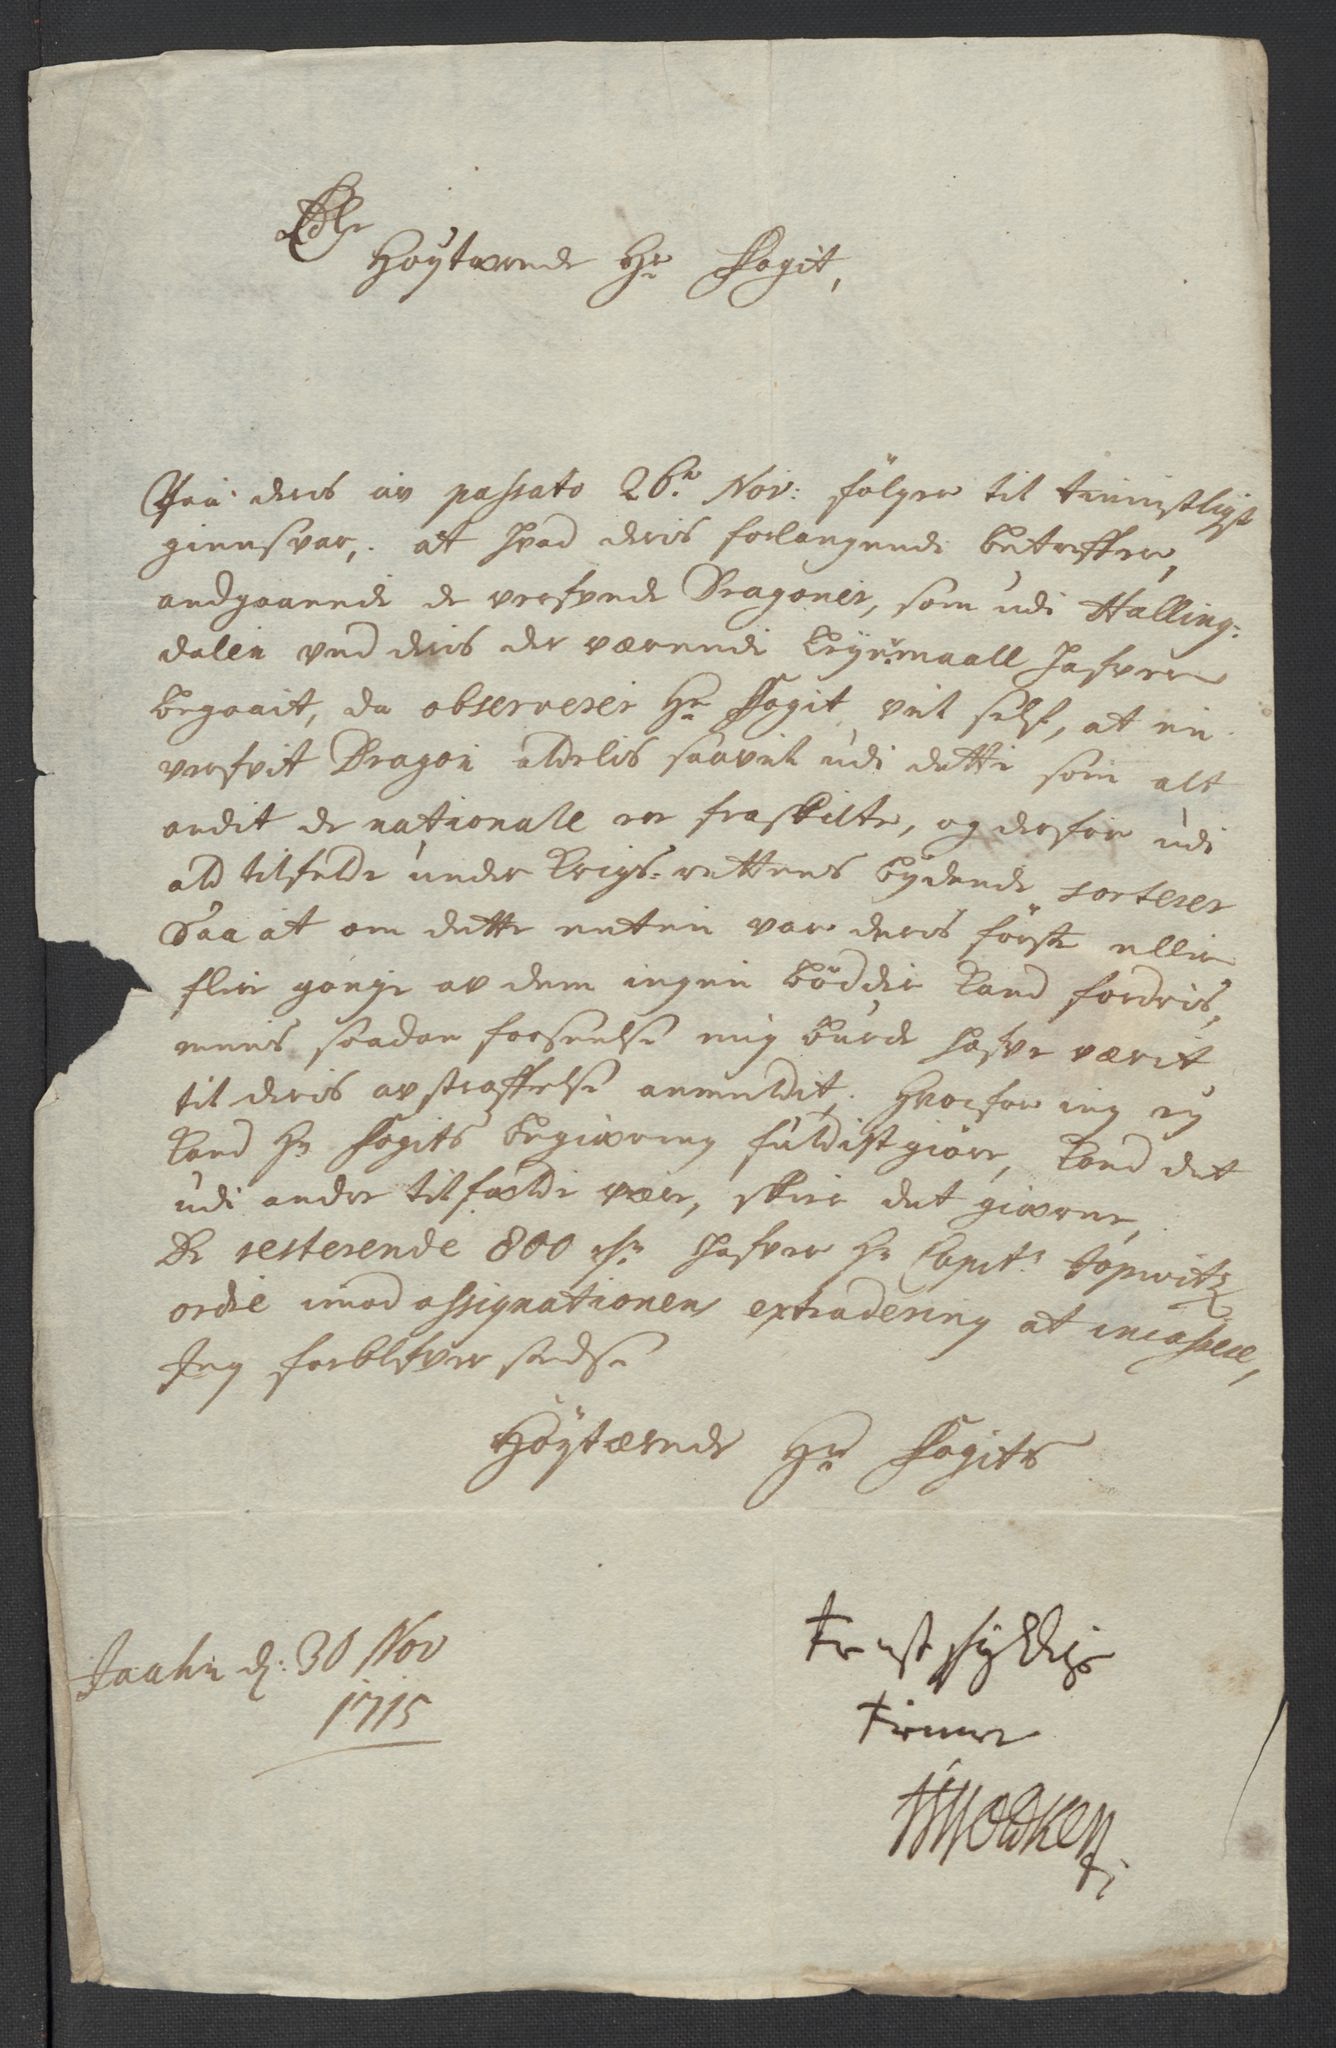 Edle
Høytærede Hr Fogit,
Paa deris av passato 26de Nov: følger til tienistligst
giensvar, at hvad deris forlangende betreffer,
andgaaende de verfvede Dragoner, som udi Halling-
dalen ved deris der værende leyermaall hafver
begaait, da observerer Hr Fogit vel self, at en
verfvit Dragon aldelis saavel udi dette som alt
andit de nationale er fraskilte, og derfor udi
ald tilfelde under Krigs-rettens bydende sorterer
Saa at om dette enten var deris første eller
flere gange av dem ingen bødder kand fordris,
mens saadan forseelse mig burde hafve værit
til deris avstraffelse anmeldit. Hvorfor ieg ey
kand Hr Fogits begiæring fuldistgiøre, kand det
udi andre tilfælde være, skeer det gierne,
De resterende 800 rdr hafver Hr Capit:
ordre imod assignationens extradering at incassere,
Jeg forblifver stedse
Høytærede Hr Fogits
d: 30 Nov
1715
tienstskyldigste
tienere